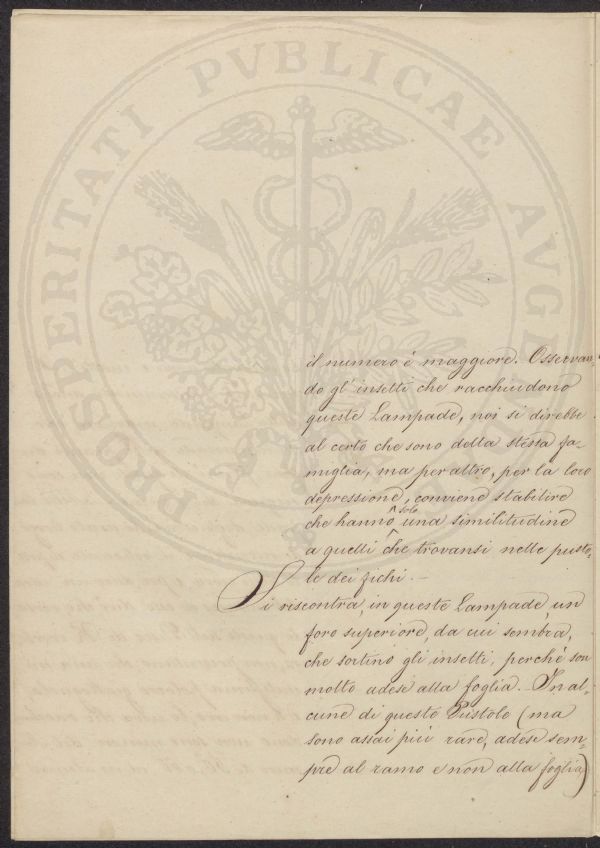 PROSPERITATI PVBLICAE AVGE
il numero è maggiore. Osservan-
do gl'insetti che racchiudono
queste Lampade, noi si direbbe
al certo che sono della stessa fa-
miglia, ma per altro, per la loro
depressione, conviene stabilire
che hanno solo una similitudine
a quelli che trovansi nelle pusto-
le dei fichi. —
Si riscontra, in queste Lampade, un
foro superiore, da cui sembra,
che sortino gli insetti, perchè son
molto adese alla foglia. In al-
cune di queste Pustole (ma
sono assai più rare, adese sem-
pre al ramo e non alla foglia)